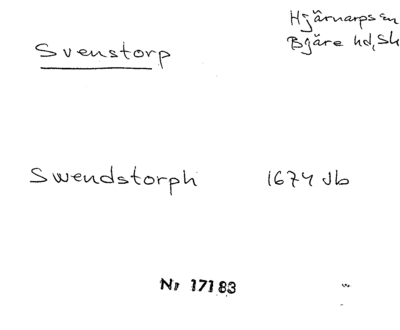 Svenstorp
Hjärnarps sn
Bjäre hd, Sk
Swendstorph 1674 Jb
Nr 17183